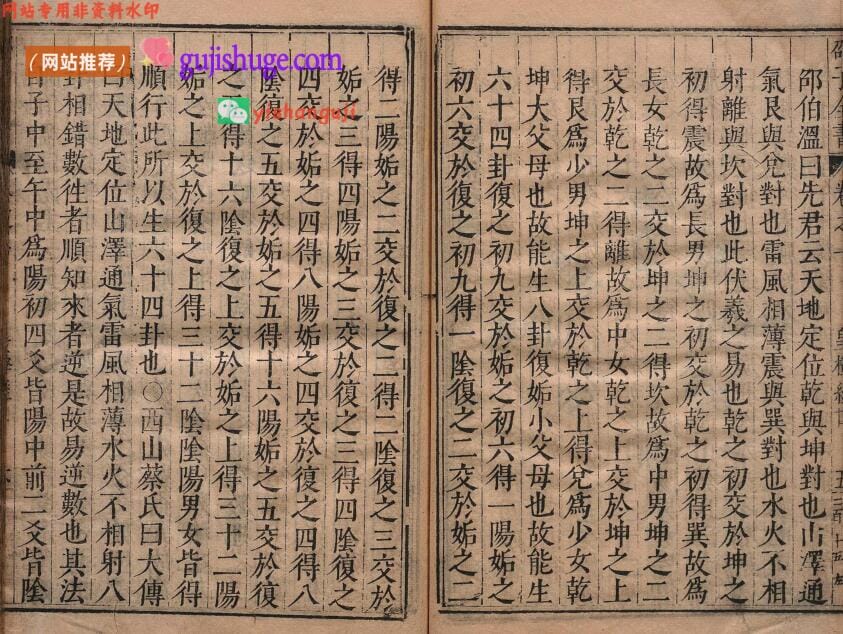 网站专用非资料水印
（网站推荐）
gujishuge.com
yishanguji
邵伯溫曰先君云天地定位乾與坤對也山澤通
氣艮與兌對也雷風相薄震與巽對也水火不相
射離與坎對也此伏羲之易也乾之初交於坤之
初得震故爲長男坤之初交於乾之初得巽故爲
長女乾之二交於坤之二得坎故爲中男坤之二
交於乾之二得離故爲中女乾之上交於坤之上
得艮爲少男坤之上交於乾之上得兌爲少女乾
坤大父母也故能生八卦復姤小父母也故能生
六十四卦復之初九交於姤之初六得一陽姤之
初六交於復之初九得一陰復之二交於姤之二
得二陽姤之二交於復之二得二陰復之三交於
姤之三得四陽姤之三交於復之三得四陰復之
四交於姤之四得八陽姤之四交於復之四得八
陰復之五交於姤之五得十六陽姤之五交於復
之得十六陰復之上交於姤之上得三十二陽
姤之上交於復之上得三十二陰陰陽男女皆得
順行此所以生六十四卦也〇西山蔡氏曰大傳
曰天地定位山澤通氣雷風相薄水火不相射八
卦相錯數徃者順知來者逆是故易逆數也其法
自子中至午中爲陽初四爻皆陽中前二爻皆陰